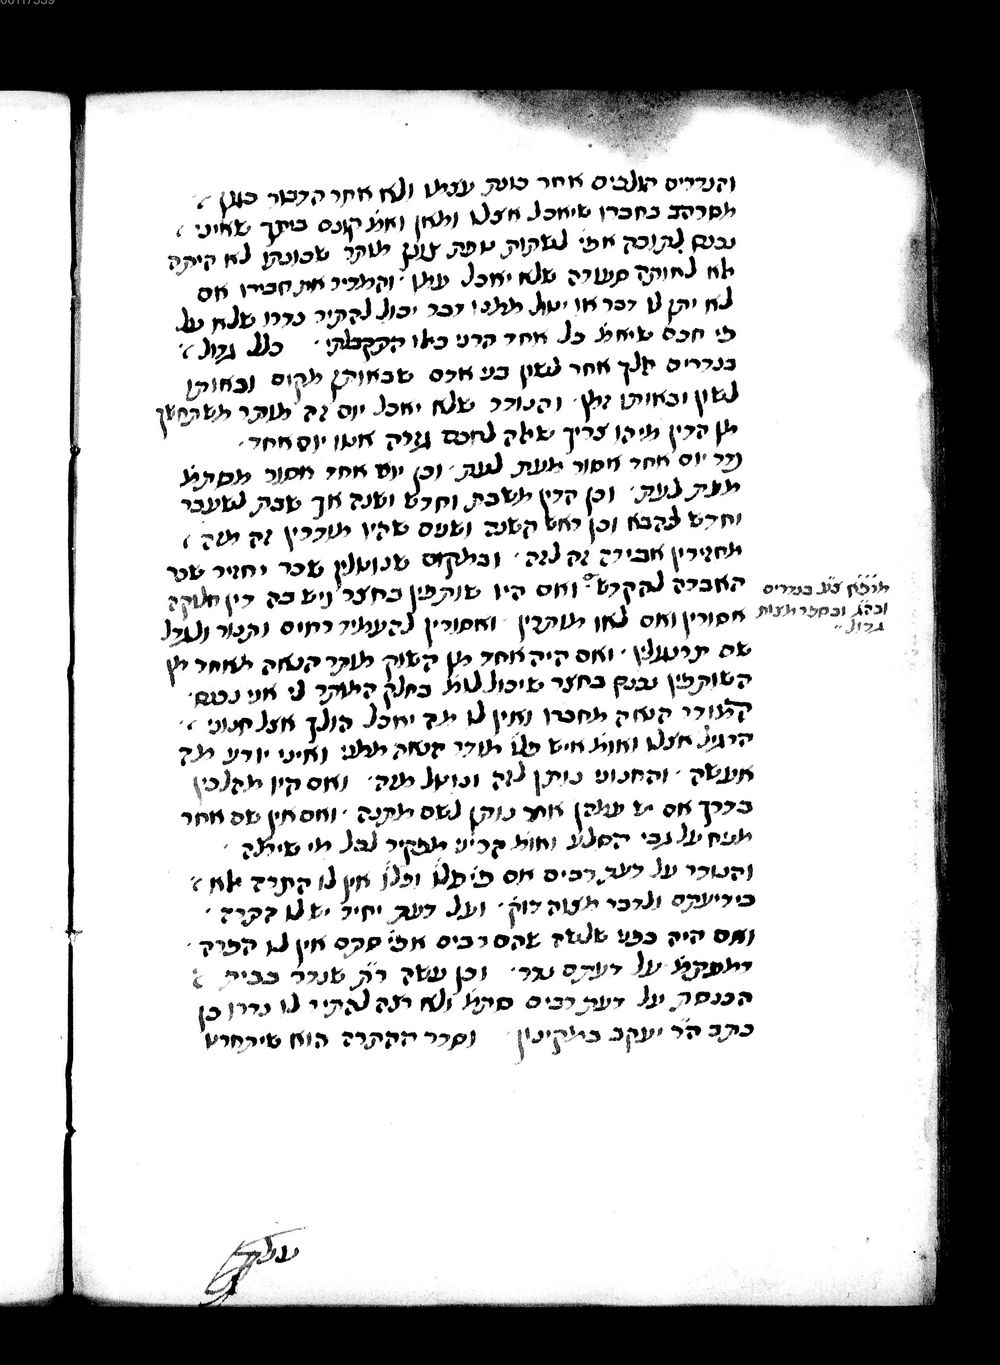 והנדרים הולכים אחר כונת עצמו ולא אחר הדבור כגון
מסרהב בחברו שיאכל אצלו ומאן ואמ' קונם ביתך שאיני
נכנס לתוכה אפי' לשתות טפת צונן מותר שכונתו לא היתה
אלא לאותה סעודה שלא יאכל עמו · והמדיר את חבירו אם
לא יתן לו דבר או יטול ממנו דבר יכול להתיר נדרו שלא על
פי חכם שיאמ' כל אחד הרני כאלו התקבלתי · כלל גדול
בנדרים הלך אחר לשון בני אדם שבאותו מקום ובאותו
לשון ובאותו זמן · והנודר שלא יאכל יום זה מותר משתחשך
מן הדין מיהו צריך שאלה לחכם גזרה אטו יום אחד ·
נדר יום אחד אסור מעת לעת · וכן יום אחד אסור מסתמ'
מעת לעת · וכן הדין משבת וחדש ושנה אך שבת לשעבר
וחדש להבא וכן ראש השנה ושנים שהיו מודרין זה מזה
מחזירין אבידה זה לזה · ובמקום שנוטלין שכר יחזיר שכר
האבדה להקדש ואם היו שותפין בחצר ויש בה דין חלוקה
אסורין ואם לאו מותרין · ואסורין להעמיד רחים ותנור ולגדל
שם תרנגולין · ואם היה אחד מן השוק מודר הנאה מאחד מן
השותפין נכנס בחצר שיכול לומ' בחלק המותר לי אני נכנס ·
המודר הנאה מחברו ואין לו מה יאכל הולך אצל חנוני
הרגיל אצלו ואומ' איש פלו' מודר הנאה ממני ואיני יודע מה
אעשה · והחנוני נותן לזה ונוטל מזה · ואם היו מהלכין
בדרך אם יש עמהן אחר נותן לשם מתנה · ואם אין שם אחר
מניח על גבי הסלע ואומ' הריני מפקיר לכל מי שירצה ·
והנודר על דעת רבים אם פי' פלו' ופלו' אין לו התרה אלא
בידיעתם ולדבר מצוה דוק' · ועל דעת יחיד יש לו הפרה ·
ואם היה בפני שלשה שהם רבים אפי' סתם אין לו הפרה ·
דמסתמ' על דעתם נדר · וכן עשה ר"ת שנדר בבית
הכנסת על דעת רבים סתמ' ולא רצה להתיר לו נדרו כן
כתב הר' יעקב במקינון · וסדר ההתרה הוא שיתחרט
ובה"ג ובספר מצות
גדול